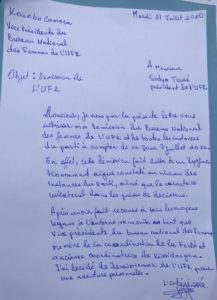 Koumba Camara
Mardi 07 Juillet 2020
Vice Présidente du
Bureau National
des Femmes de L'UFR
A Monsieur
Sidya Touré
président de l'UFR
Objet : Démission de
L'UFR
Monsieur, je viens par la présente lettre vous
adresser ma démission du Bureau National
des femmes de L'UFR et de toutes les instances
du parti à compter de ce jour 7 juillet 2020
En effet, cette démission fait suite à un
constaté au niveau des
instances du parti, ainsi que le caractère
unilatéral dans les prises de décisions.
Après avoir fait recours à bon
vice présidente du bureau national des femmes
membre de la coordination de la Forêt et
ancienne coordinatrice de Kissidougou
J'ai décidé de démissionner de l'UFR pour
une aventure personnelle.